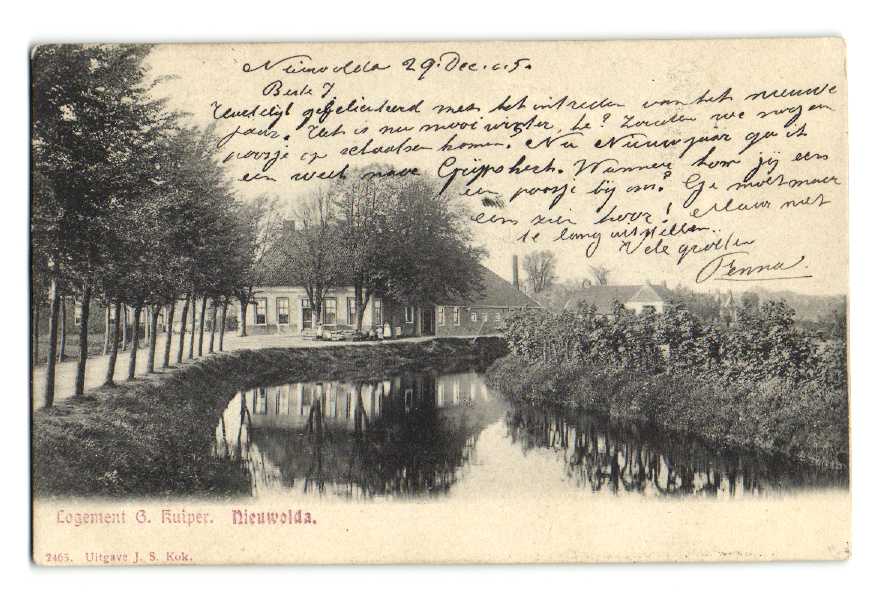 Nieuwolda 29. Dec. 05.
Beste J
Hartelijk gefeliciteerd met het intreden van het nieuwe
jaar. Het is nu mooi winter, hè? Zouden we nog een
poosje op schaatsen komen? Na Nieuwjaar ga ik
een week naar Grijpskerk. Wanneer kom jij een
een poosje bij ons? Ge moet maar
eens zien hoor! Maar niet
te lang uitstellen.
Vele groeten
Fenna
Logement G. Kuiper. Nieuwolda.
2465. Uitgave J. S. Kok.